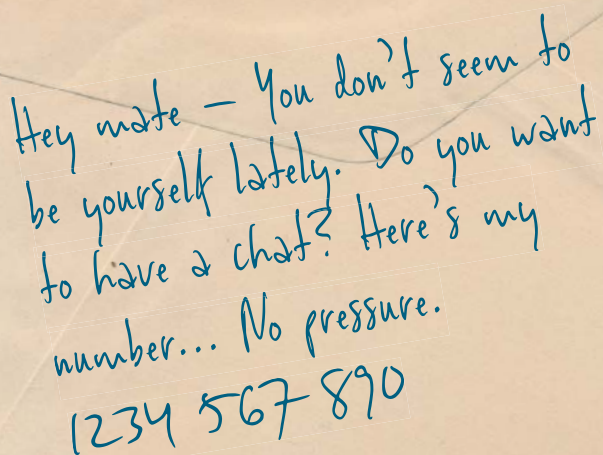 Hey mate – You don't seem to
be yourself lately. Do you want
to have a chat? Here's my
number... No pressure.
1234 567 890